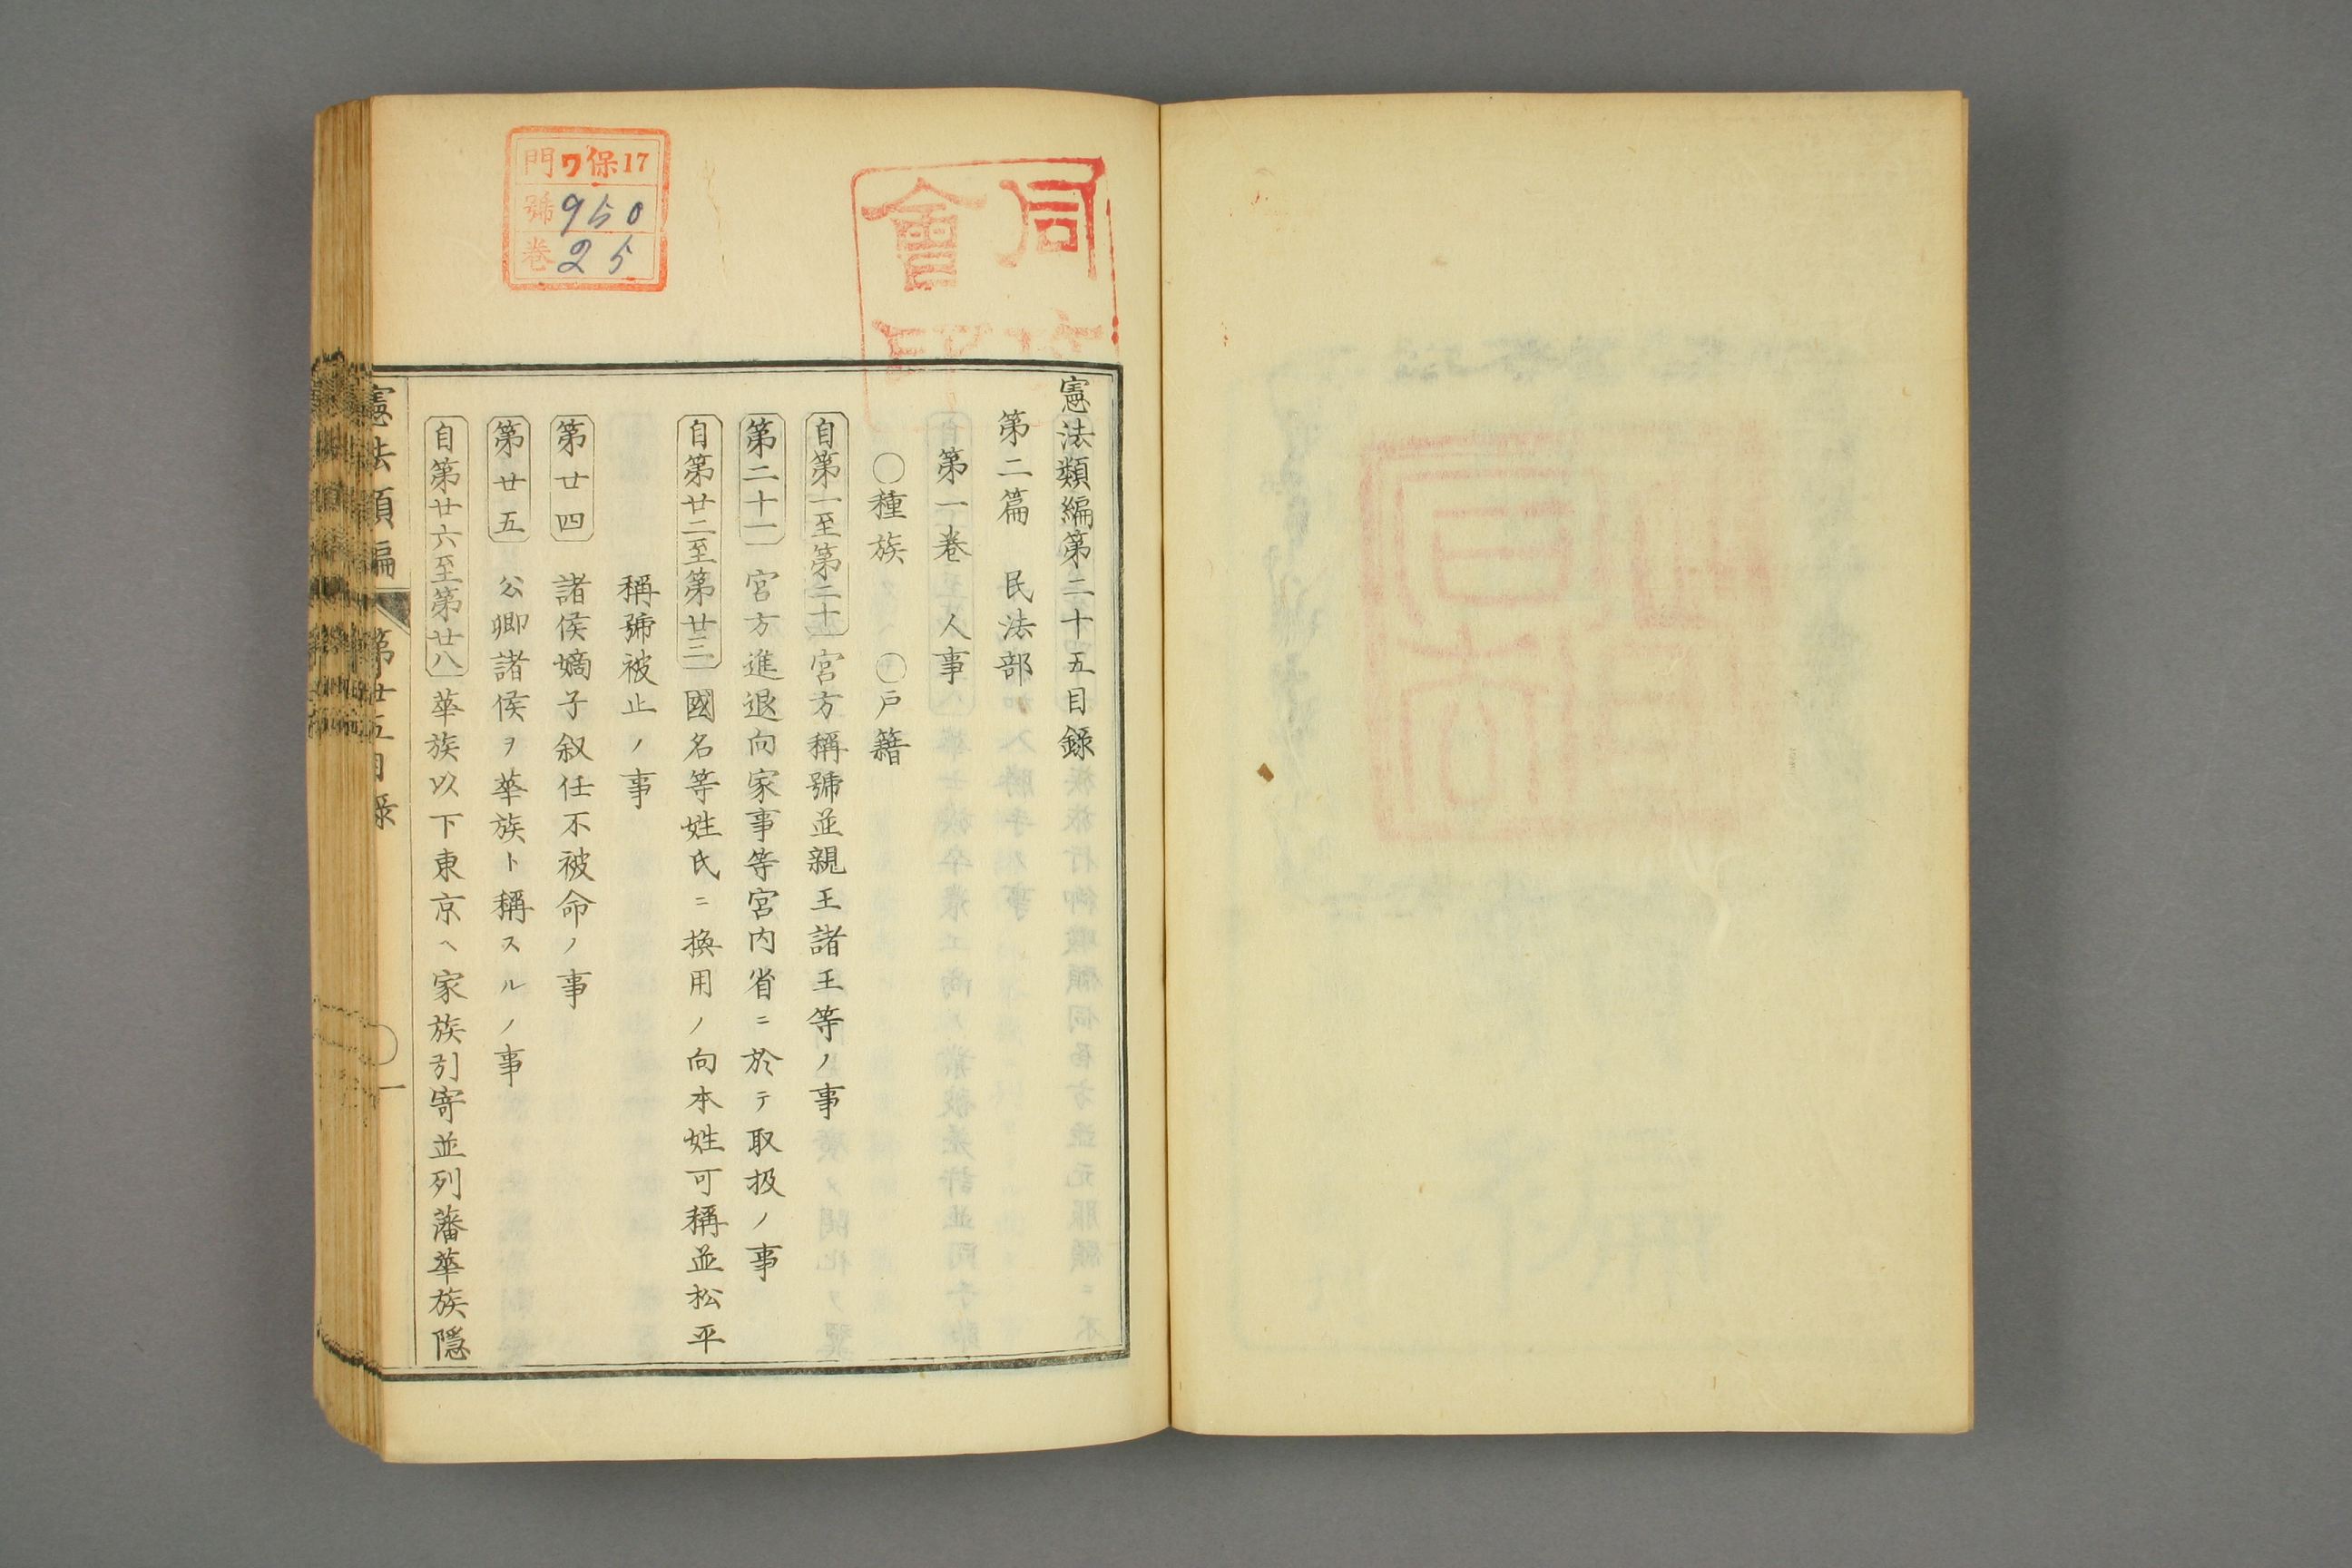 門ワ保17
號950
巻25
同
會
憲法類編第二十五目録
第二篇　民法部
第一巻　人事
〇種族　〇戸籍
自第一至第二十　宮方稱號並親王諸王等ノ事
第二十一　宮方進退向家事等宮内省ニ於テ取扱ノ事
自第廿二至第廿三　國名等姓氏ニ換用ノ向本姓可稱並松平
稱號被止ノ事
第廿四　諸侯嫡子叙任不被命ノ事
第廿五　公卿諸侯ヲ華族ト稱スルノ事
自第廿六至第廿八　華族以下東京ヘ家族引寄並列藩華族隱
憲法類編　第廿五目録　一